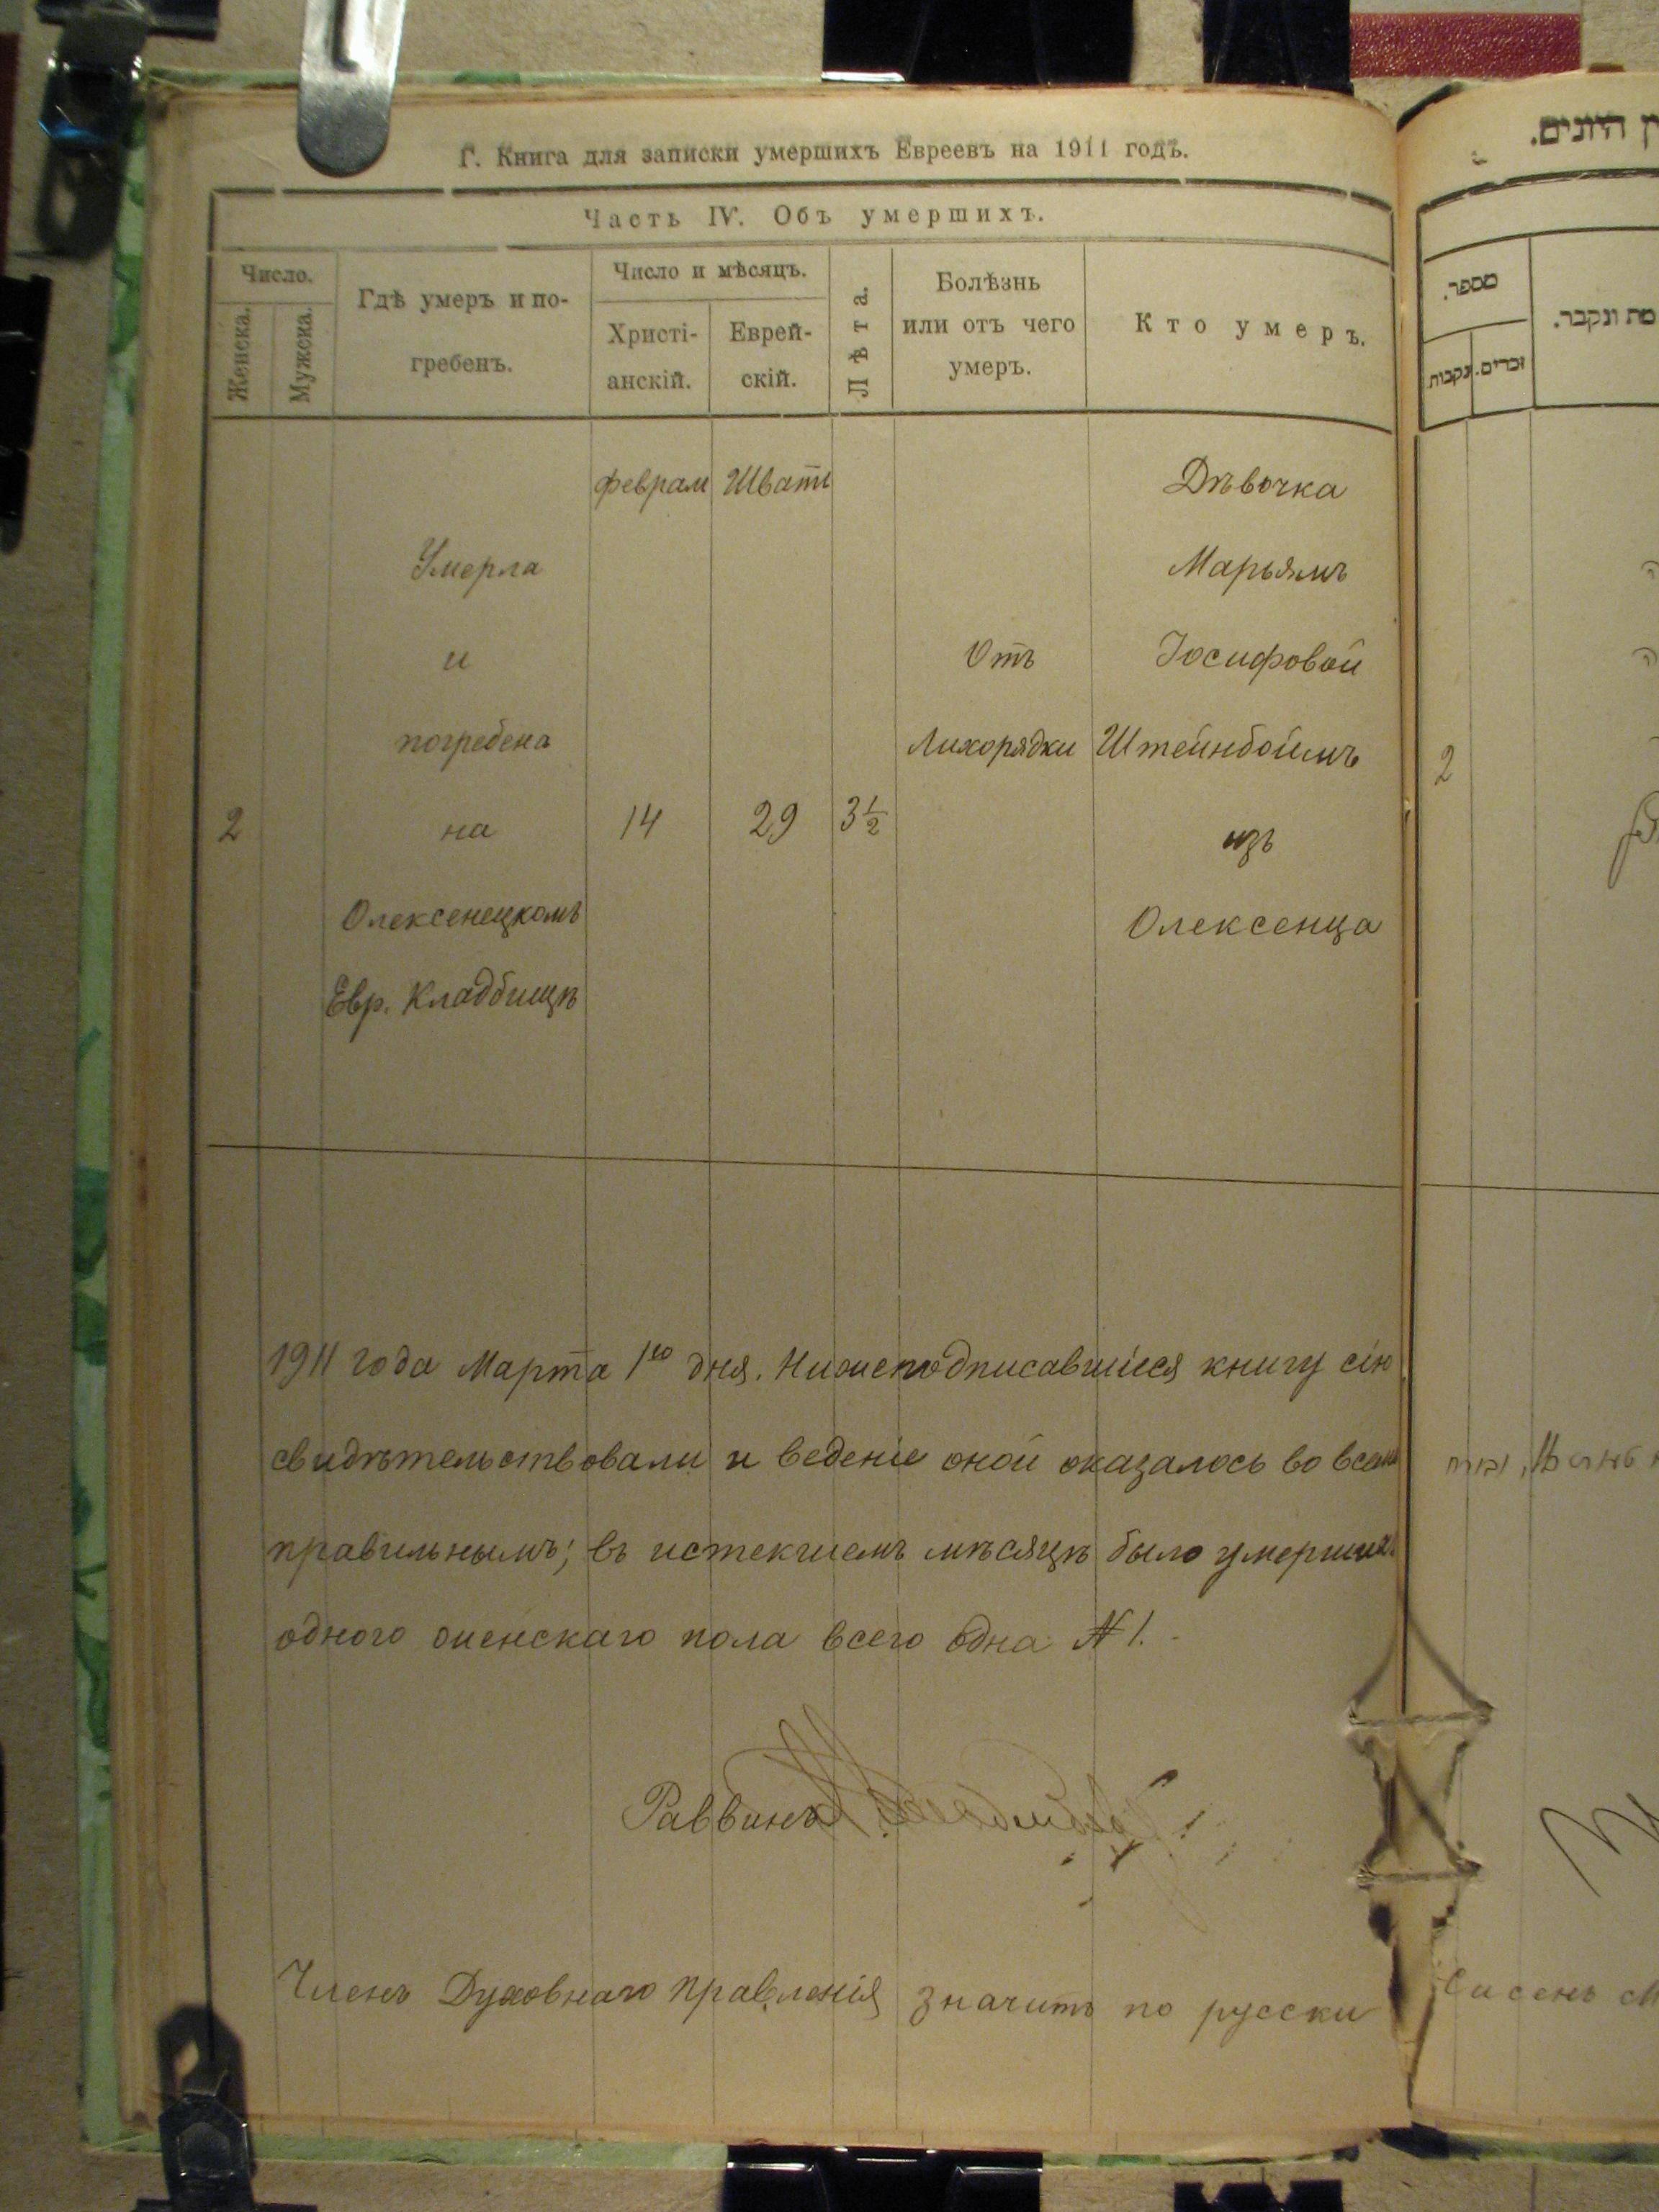 Г. Книга для записки умершихъ Евреевъ на 1911 годъ.
Часть IV. Объ умершихъ.
Число.
Женска.
Мужска.
Гдѣ умеръ и по-
гребенъ.
Число и мѣсяцъ.
Христі-
анскій.
Еврей-
скій.
Лѣта.
Болѣзнь
или отъ чего
умеръ.
Кто умеръ.
Февраля Шватъ Дѣвочка
Умерла Марьямъ
и Отъ Іосифовой
погребена Лихорядки Штейнбоймъ
2 на 14 29 3 1/2 изъ
Олексенецкомъ Олексенца
Евр. Кладбищѣ
1911 года Марта 1го дня. Нижеподписавшіеся книгу сію
свидѣтельствовали и веденіе оной оказалось во всемъ
правильнымъ; въ истекшемъ мѣсяцѣ было умершихъ
одного женскаго пола всего одна № 1.
Раввинъ
Членъ Духовнаго Правленія значитъ по русски
היונים.
מספר.
זכרים.
נקבות.
מת ונקבר.
2